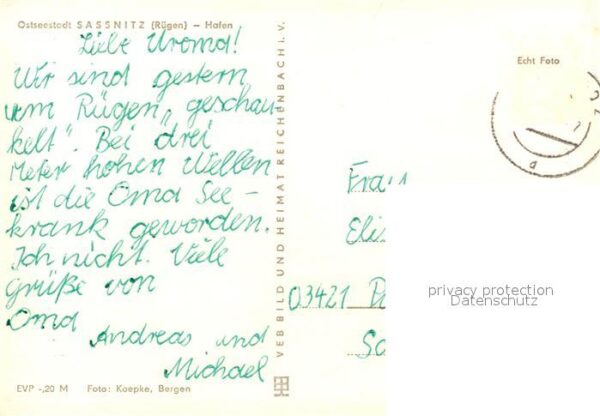 Ostseestadt SASSNITZ (Rügen) – Hafen
Liebe Uroma!
Wir sind gestern
um Rügen „geschau-
kelt“. Bei drei
Meter hohen Wellen
ist die Oma See-
krank geworden.
Ich nicht. Viele
Grüße von
Oma
Andreas und
Michael
EVP -,20 M Foto: Koepke, Bergen
VEB BILD UND HEIMAT REICHENBACH i. V.
Echt Foto
Frau
03421
privacy protection
Datenschutz